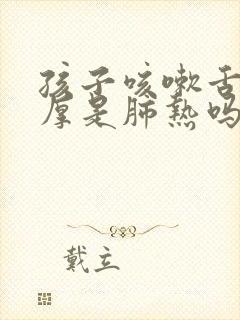 孩子咳嗽舌
厚是肺热吗
戴立